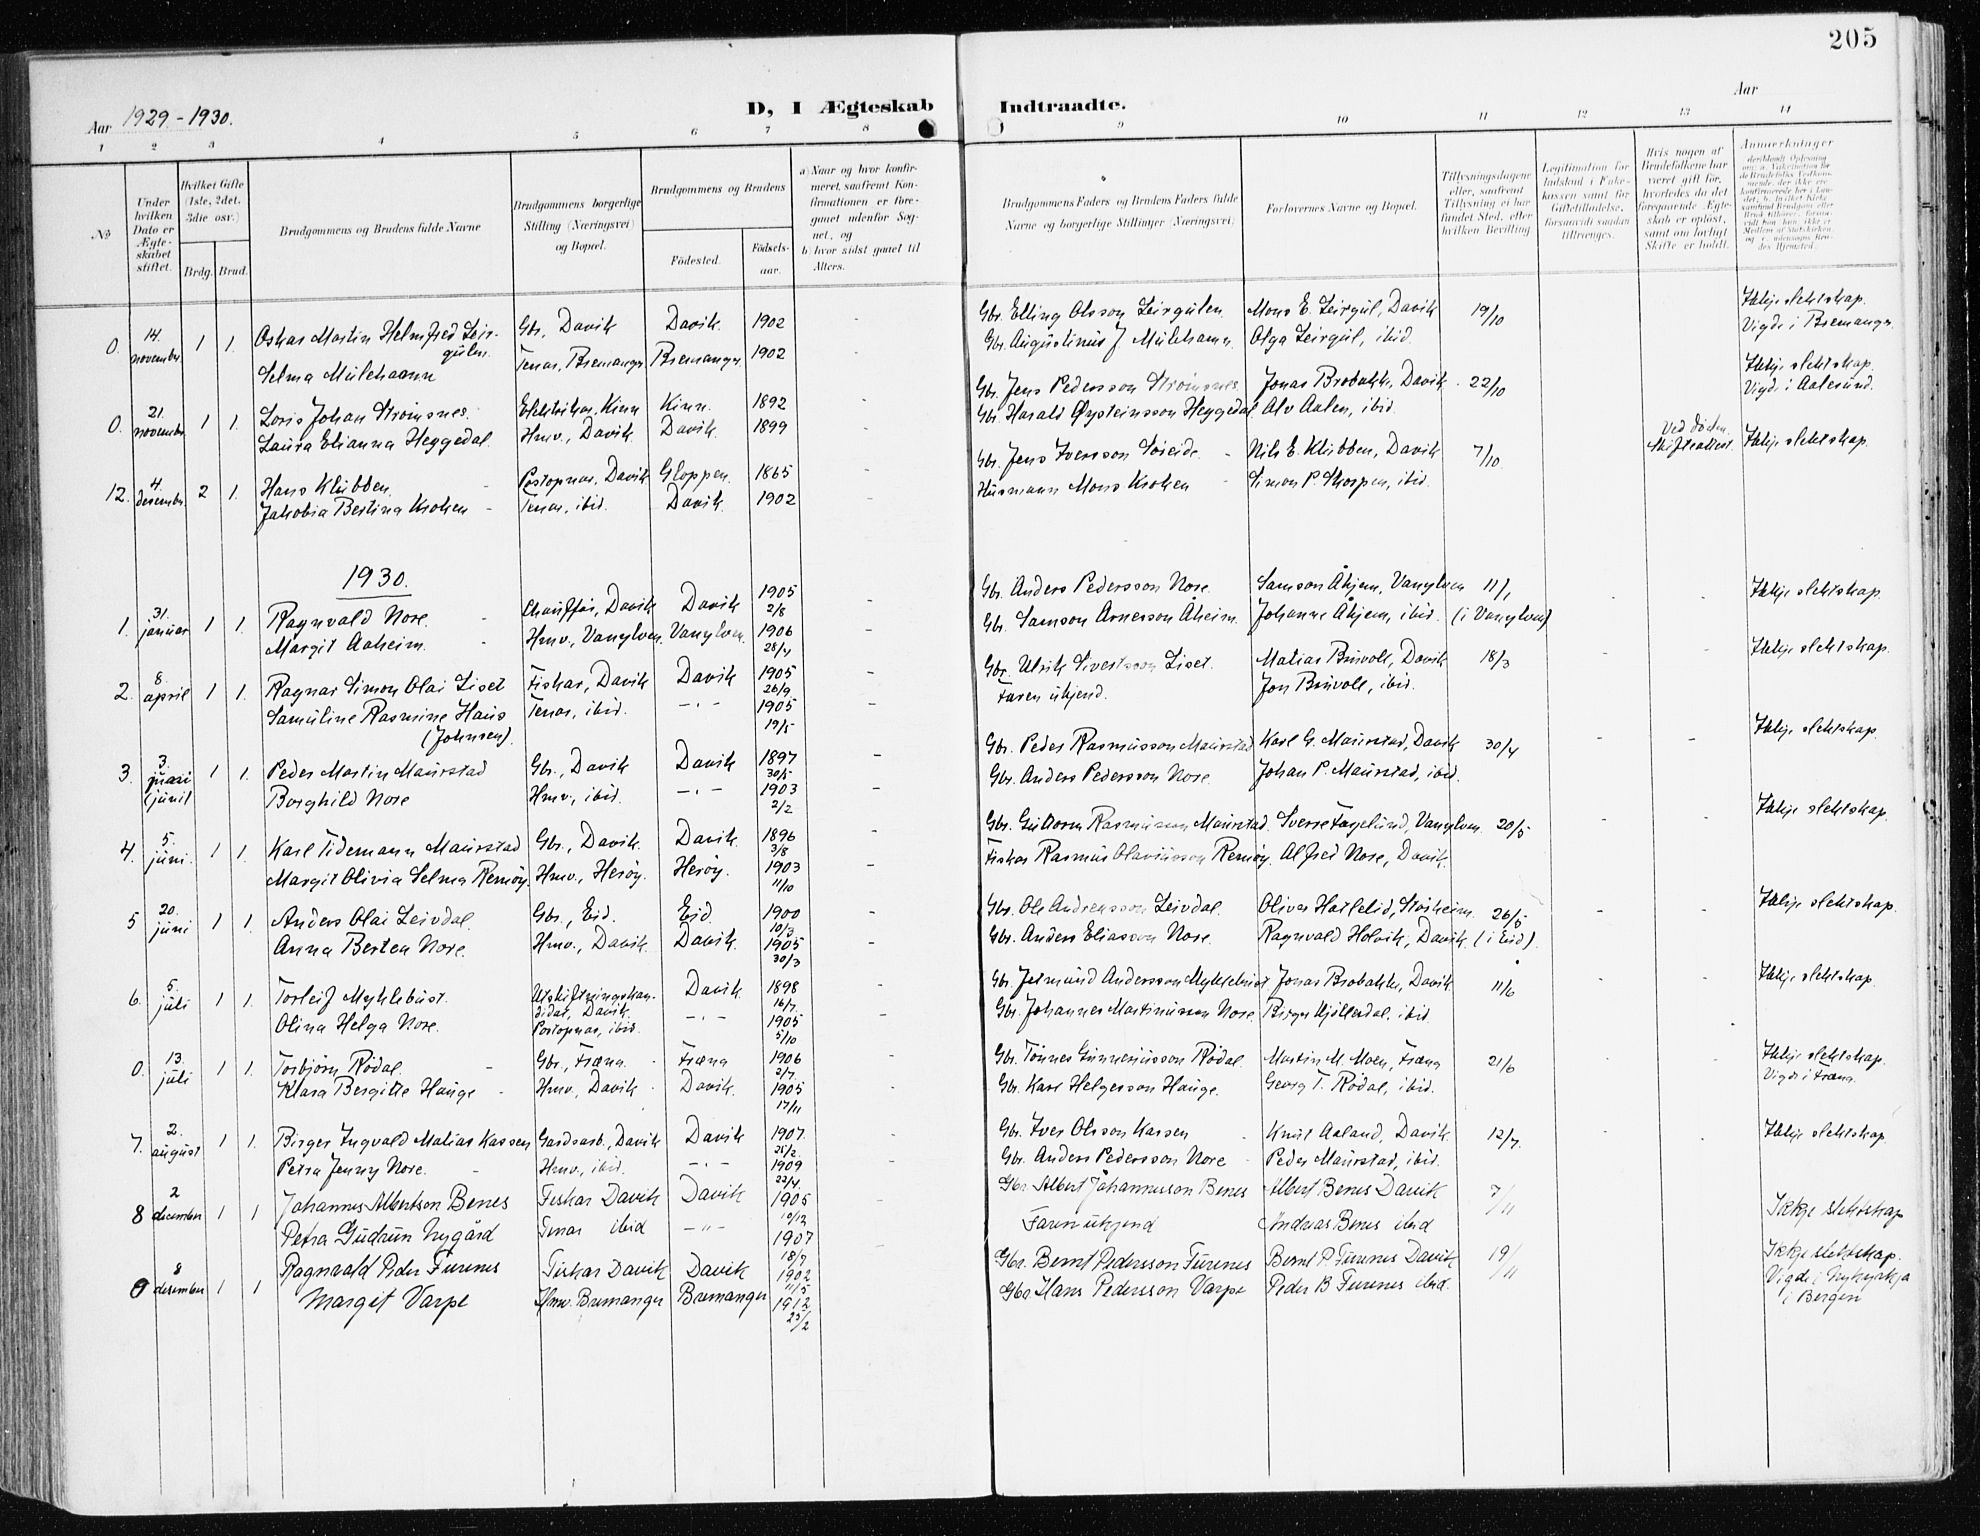 205
Aar 1929 - 1930.
D, I Ægteskab Indtraadte.
Aar
1 2 3 4 5 6 7 8 9 10 11 12 13 14
No
Under hvilken Dato er Ægteskabet stiftet.
Hvilket Gifte (1ste, 2det, 3die osv.)
Brdg. Brud.
Brudgommens og Brudens fulde Navne
Brudgommens borgerlige Stilling (Næringsvei) og Bopæl.
Brudgommens og Brudens
Fødested.
Fødselsaar.
a) Naar og hvor konfirmeret, saafremt Konfirmationen er foregaaet udenfor Sognet, og
b) hvor sidst gaaet til Alters.
Brudgommens Faders og Brudens Faders fulde Navne og borgerlige Stillinger (Næringsvei)
Forlovernes Navne og Bopæl.
Tillysningsdagene eller, saafremt Tillysning ei har fundet Sted, efter hvilken Bevilling
Legitimation for Indskud i Enkekassen samt for Giftetilladelse, forsaavidt saadan tiltrænges.
Hvis nogen af Brudefolkene har været gift før, hvorledes da det foregaaende Ægteskab er opløst, samt om lovligt Skifte er holdt.
Anmerkninger
0. 14. november 1 1. Oskar Martin Helmfred Leirgulen Gbr. Davik Davik 1902 Gbr. Elling Olsson Leirgulen Mons E. Leirgul, Davik 19/10 Ikkje slektskap. Vigde i Bremanger
Selma Mulehamn Tenar, Bremanger Bremanger 1902 Gbr. Augustinus J Mulehamn Olga Leirgul, ibid.
0. 21. november 1 1. Loris Johan Strømsnes Elektrikar, Kinn Kinn. 1892 Gbr. Jens Pedersson Strømsnes Jonas Brobakk, Davik 22/10 Ikkje slektskap. Vigd i Aalesund.
Laura Elianna Heggedal Hmv., Davik Davik 1899 Gbr. Harald Øysteinsson Heggedal Alv Aalen, ibid.
12. 4. desember 2 1. Hans Klubben Postopnar, Davik Gloppen 1865 Gbr. Jens Iversson Søreide Nils E. Klubben, Davik 7/10 Ved døden. Skifteattest Ikkje slektskap.
Jakobia Bertina Kroken Tenar, ibid. Davik 1902 Husmann Mons Kroken Simon P. Skorpen, ibid.
1930.
1. 31. januar 1 1. Ragnvald Nore. Chauffør, Davik Davik 1905 2/8 Gbr. Anders Pedersson Nore Samson Åhjem, Vanylven 11/1 Ikkje slektskap.
Margit Aaheim. Hmv., Vanylven. Vanylven. 1906 28/4 Gbr. Samson Arnesson Åheim. Johanne Åhjem, ibid. (i Vanylven)
2. 8. april 1 1. Ragnar Simon Olai Liset Fiskar, Davik Davik 1905 26/9 Gbr. Ulrik Sivertsson Liset. Matias Bruvoll, Davik 18/3 Ikkje slektskap.
Samuline Rasmine Haus (Johnsen). Tenar, ibid. -"- 1905 19/5 Faren ukjend. Jon Bruvoll, ibid.
3. 3. juni (juni) 1 1. Peder Martin Maurstad Gbr., Davik Davik 1897 30/5 Gbr. Peder Rasmusson Maurstad Karl G. Maurstad, Davik 30/4 Ikkje slektskap.
Borghild Nore Hmv., ibid. -"- 1903 2/2 Gbr. Anders Pedersson Nore. Johan P. Maurstad, ibid.
4. 5. juni. 1 1. Karl Tidemann Maurstad Gbr., Davik. Davik. 1896 3/8 Gbr. Guttorm Rasmusson Maurstad. Sverre Fagelund, Vanylven 20/5 Ikkje slektskap.
Margit Olivia Selma Remøy. Hmv., Herøy. Herøy. 1903 11/10 Fiskar Rasmus Olaviusson Remøy. Alfred Nore, Davik.
5 20. juni 1 1. Anders Olai Leivdal. Gbr., Eid. Eid. 1900 10/3 Gbr. Ole Andreasson Leivdal. Oliver Hatlelid, Støiheim. 26/5 Ikkje slektskap.
Anna Bertea Nore. Hmv., Davik. Davik. 1905 30/3 Gbr. Anders Eliasson Nore. Ragnvald Holvik, Davik. (i Eid).
6. 5. juli 1 1. Torleif Myklebust. Utskiftningskandidat, Davik. Davik 1898 16/7 Gbr. Jetmund Andersson Myklebust Jonas Brobakk, Davik 11/6 Ikkje slektskap.
Olina Helga Nore. Postopnar, ibid. -"- 1905 5/10 Gbr. Johannes Martinusson Nore. Birger Hjøllesdal, ibid.
0. 13. juli 1 1. Torbjørn Rødal. Gbr., Fræna Fræna 1906 2/7 Gbr. Tønnes Gunneriusson Rødal. Martin M. Moen, Fræna 21/6 Ikkje slektskap. Vigde i Fræna
Klara Bergitte Hauge Hmv., Davik Davik. 1905 17/11 Gbr. Karl Helgesson Hauge. Georg T. Rødal, ibid.
7. 2. august 1 1. Birger Ingvald Matias Karsen Gardsarb., Davik Davik 1907 25/2 Gbr. Iver Olsson Karsen Knut Aaland, Davik 12/7. Ikkje slektskap.
Petra Jenny Nore. Hmv., ibid. -"- 1909 22/4 Gbr. Anders Pedersson Nore Peder Maurstad, ibid.
8 2 december 1 1 Johannes Albertson Benes Fiskar Davik Davik 1905 10/12 Gbr. Albert Johannesson Benes Albert Benes Davik 7/11 Ikkje slektskap
Petra Gudrun Nygård Tenar ibid -"- 1907 18/9 Faren ukjend Andreas Benes ibid
9 8 desember 1 1 Ragnvald Peder Furenes Fiskar Davik Davik 1902 11/5 Gbr. Bernt Pedersson Furenes Bernt P. Furenes Davik 19/11 Ikkje slektskap. Vigde i Nykyrkja i Bergen
Margit Varpe Hmv. Bremanger Bremanger 1912 25/2 Gbr. Hans Pedersson Varpe Peder B Furenes ibid.